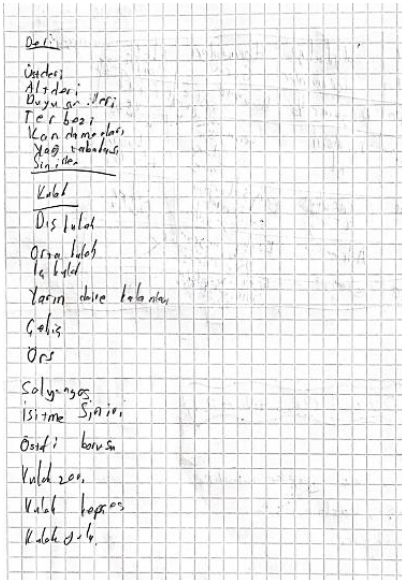 Deri
Üstderi
Alt deri
Duyu
Ter bezi
Kan damarları
Yağ tabakası
Sinirler
Kulak
Dış kulak
Orta kulak
İç kulak
Yarım daire kanalları
Çekiç
Örs
Salyangoz
İşitme Siniri
Östaki borusu
Kulak zarı
Kulak kepçesi
Kulak yolu